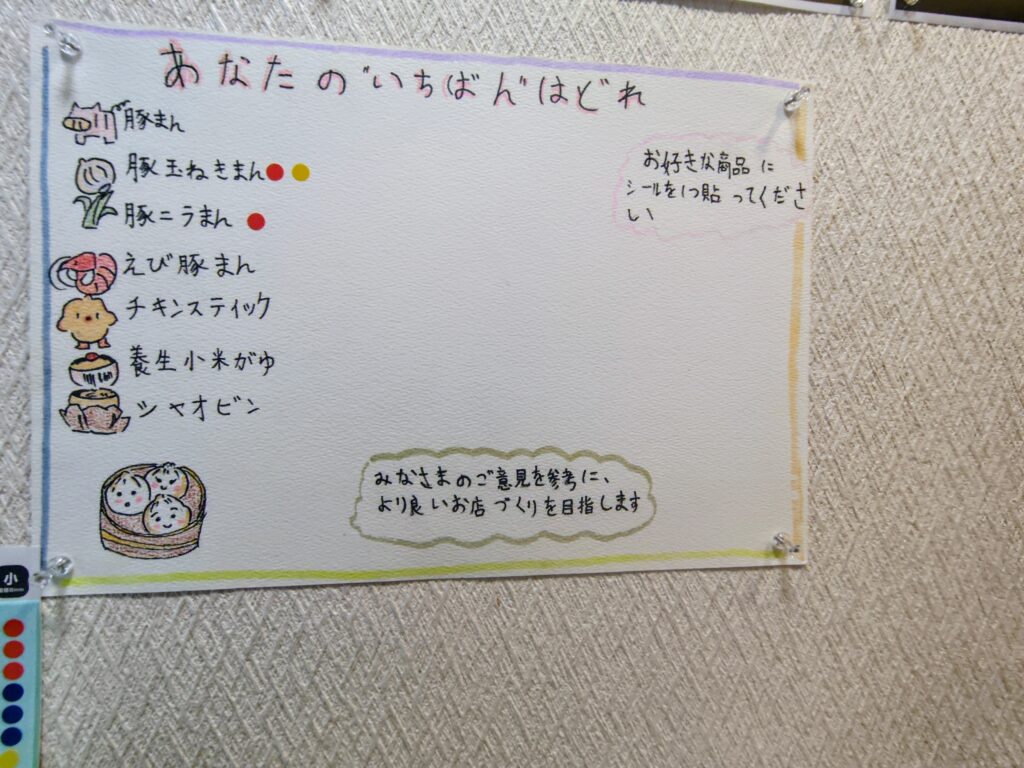 あなたのいちばんはどれ
豚まん
豚玉ねきまん
豚ニラまん
えび豚まん
チキンスティック
養生小米がゆ
シャオビン
お好きな商品に
シールを1つ貼ってくださ
い
みなさまのご意見を参考に、
より良いお店づくりを目指します
小